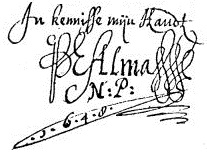 In kennisse mijn Handt
P E Alma
N:P:
1.6.4.8.